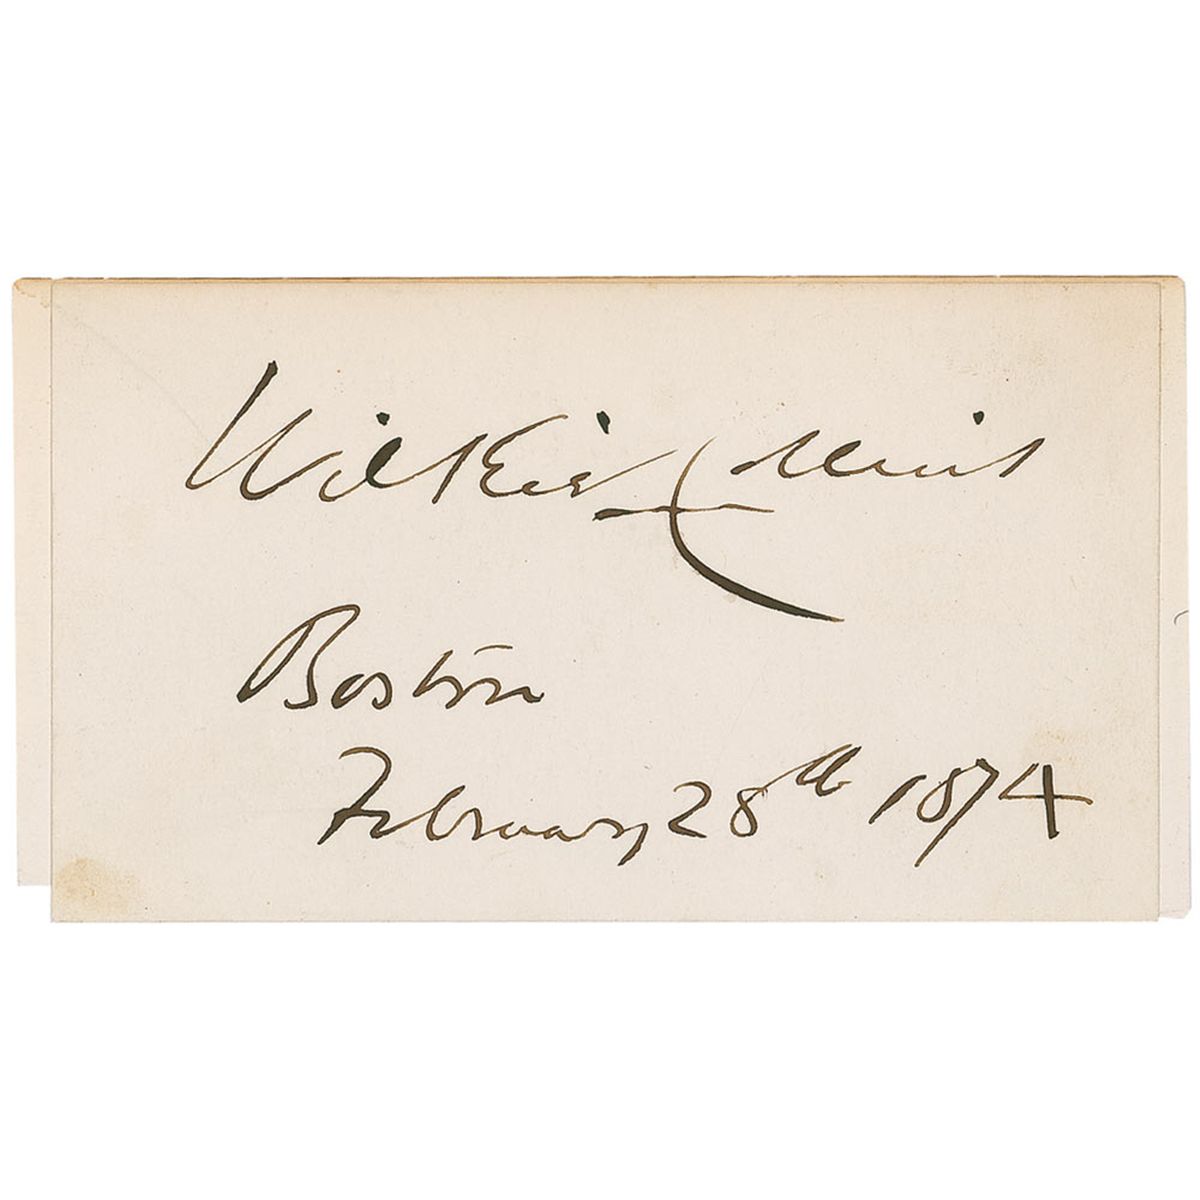 Wilkie Collins
Boston
February 28th 1874